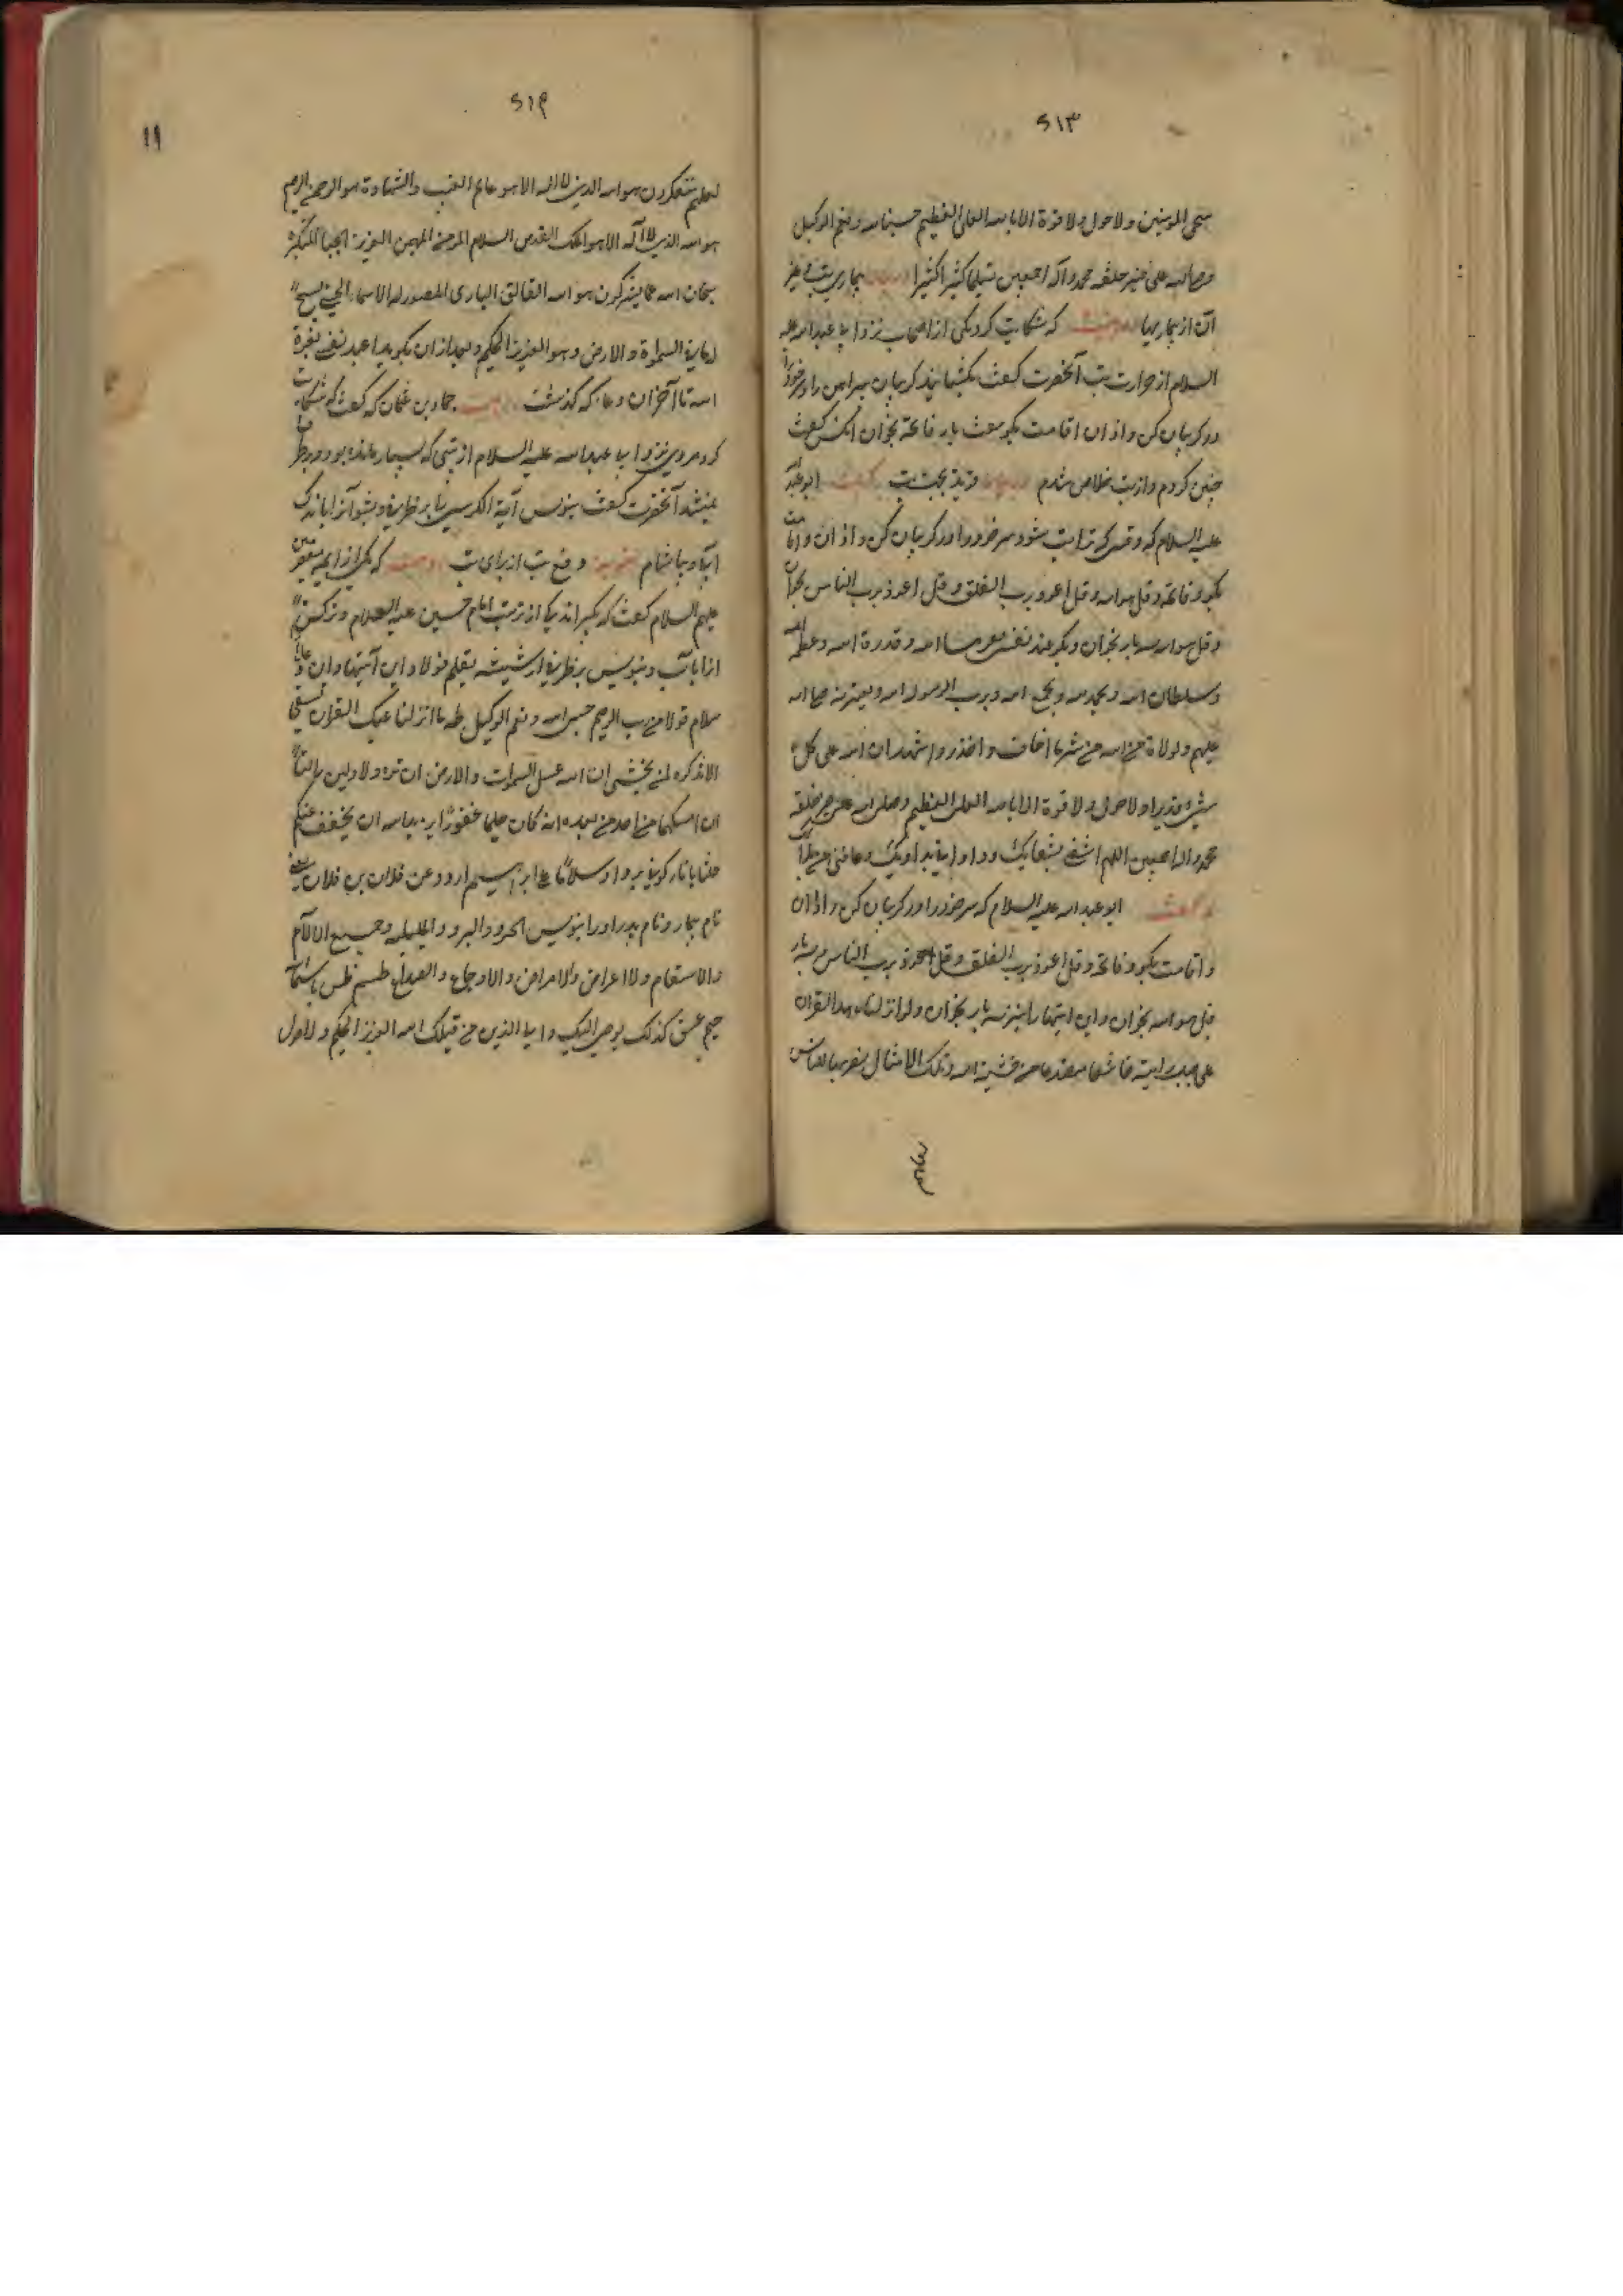 ۶۱۳
سمی المومنین ولا حول ولا قوة الا بالله العلی العظیم حسبنا الله ونعم الوکیل
وصلی الله علی خیر خلقه محمد وآله اجمعین تسلیما کثیرا کثیرا بیماری تب و غیر
آن از بیماریها که شکایت کرد یکی از اصحاب نزد ابا عبد الله علیه
السلام از حرارت تب آنحضرت گفت بگشا بند گریبان پیراهن را و سر خود را
در گریبان کن و اذان اقامت بگو هفت بار فاتحه بخوان آنکس گفت
چنین کردم و از تب خلاص شدم جهت تب ابو عبد الله
علیه السلام که وقتی که ترا تب شود سر خود را در گریبان کن و اذان و اقامت
بگو و فاتحه و قل هو الله و قل اعوذ برب الفلق و قل اعوذ برب الناس بخوان
و قل هو الله سه بار بخوان و بگو اعیذ نفسی بعزت الله و قدرة الله و عظمة الله
و سلطان الله و بجمع الله و برسول الله و بعترته صلی الله
علیهم و لولاة من الله من شر ما اخاف و احذر و اشهد ان الله علی کل
شیء قدیر و لا حول ولا قوة الا بالله العلی العظیم و صلی الله علی خیر خلقه
محمد و اله اجمعین اللهم اشفنی بشفائک و داونی بدوائک و عافنی من بلائک
ابو عبد الله علیه السلام که سر خود را در گریبان کن و اذان
و اقامت بگو و فاتحه و قل اعوذ برب الفلق و قل اعوذ برب الناس و سه بار
قل هو الله بخوان و این آیتها را نیز سه بار بخوان و لو انزلنا هذا القران
علی جبل لرایته خاشعا متصدعا من خشیة الله و تلک الامثال نضربها للناس
لعلهم
۶۱۴
۱۱
لعلهم یتفکرون هو الله الذی لا اله الا هو عالم الغیب والشهادة هو الرحمن الرحیم
هو الله الذی لا اله الا هو الملک القدوس السلام المومن المهیمن العزیز الجبار المتکبر
سبحان الله عما یشرکون هو الله الخالق الباری المصور له الاسماء الحسنی یسبح
له ما فی السموات والارض وهو العزیز الحکیم و بعد از ان بگوید اعیذ نفسی بعزة
الله تا آخر ان دعا که گذشت حماد بن عثمان که گفت که شکایت
کرد مردی نزد ابا عبد الله علیه السلام از تبی که بسیار مانده بود و برطرف
نمیشد آنحضرت گفت بنویس آیة الکرسی را بر ظرفی و بشو آنرا باندک
آب و بیاشام دفع تب از برای تب که یکی از ایمه معصومین
علیهم السلام گفت که بگیر اندکی از تربت امام حسین علیه السلام و ترکن
انرا باب و بنویس بر ظرفی از شیشه بقلم فولاد این آیتها و این دعا را
سلام قولا من رب الرحیم حسبی الله ونعم الوکیل طه ما انزلنا علیک القران لتشقی
الا تذکرة لمن یخشی ان الله یمسک السموات والارض ان تزولا ولاین زالتا
ان امسکهما من احد من بعده انه کان حلیما غفورا یرید الله ان یخفف عنکم
قلنا یا نار کونی بردا وسلاما علی ابراهیم ارود عن فلان بن فلان یعنی
نام بیمار و نام پدر او را بنویس الحر و البرد و الملیله و جمیع الالام
و الاسقام و الاعراض و الامراض و الاوجاع و الصداع طسم طس باسماء
حم عسق کذلک یوحی الیک و الی الذین من قبلک الله العزیز الحکیم و لا حول